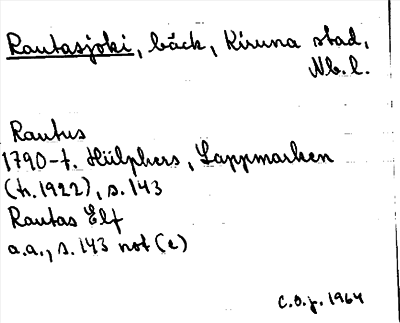 Rautasjoki, bäck, Kiruna stad,
Nb.l.
Rautus
1790-t. Hülphers, Lappmarken
(tr.1922), s.143
Rautas Elf
a.a., s.143 not (e)
C.O.J. 1964